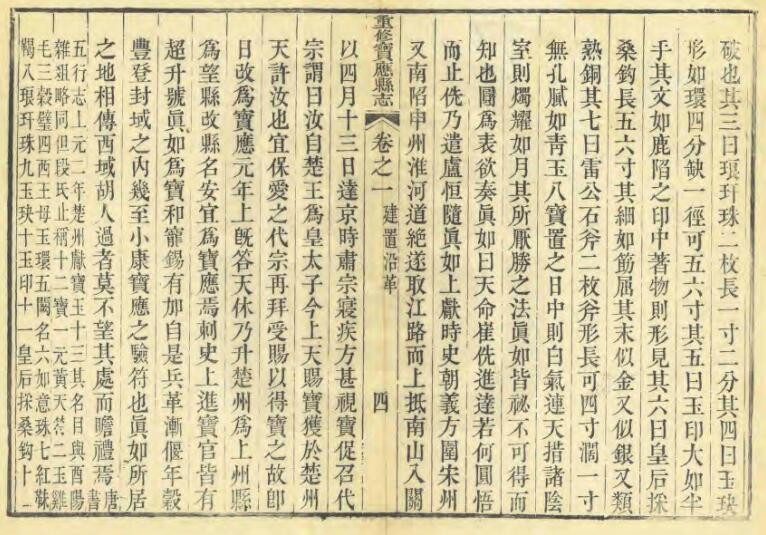 破也其三曰琅玕珠二枚長一寸二分其四曰玉玦
形如環四分缺一徑可五六寸其五曰玉印大如半
手其文如鹿陷之印中著物則形見其六曰皇后採
桑鈎長五六寸其細如筯屈其末似金又似銀又類
熟銅其七曰雷公石斧二枚斧形長可四寸濶一寸
無孔膩如青玉八寶置之日中則白氣連天措諸陰
室則燭耀如月其所厭勝之法眞如皆祕不可得而
知也圓爲表欲奏眞如曰天命崔侁進達若何圓悟
而止侁乃遣盧恒隨眞如上獻時史朝義方圍宋州
又南陷申州淮河道絶遂取江路而上抵南山入關
重修寶應縣志 卷之一 建置沿革 四
以四月十三日達京時肅宗寢疾方甚視寶促召代
宗謂曰汝自楚王爲皇太子今上天賜寶獲於楚州
天許汝也宜保愛之代宗再拜受賜以得寶之故卽
日改爲寶應元年上旣答天休乃升楚州爲上州縣
爲望縣改縣名安宜爲寶應焉刺史上進寶官皆有
超升號眞如爲寶和寵錫有加自是兵革漸偃年穀
豐登封域之內幾至小康寶應之驗符也眞如所居
之地相傳西域胡人過者莫不望其處而瞻禮焉唐書
五行志上元二年楚州獻寶玉十三其名目與酉陽
雜俎略同但段氏止稱十二寶一元黃天苻二玉雞
毛三穀璧四西王母玉環五闕名六如意珠七紅靺
鞨八琅玕珠九玉玦十玉印十一皇后採桑鈎十二